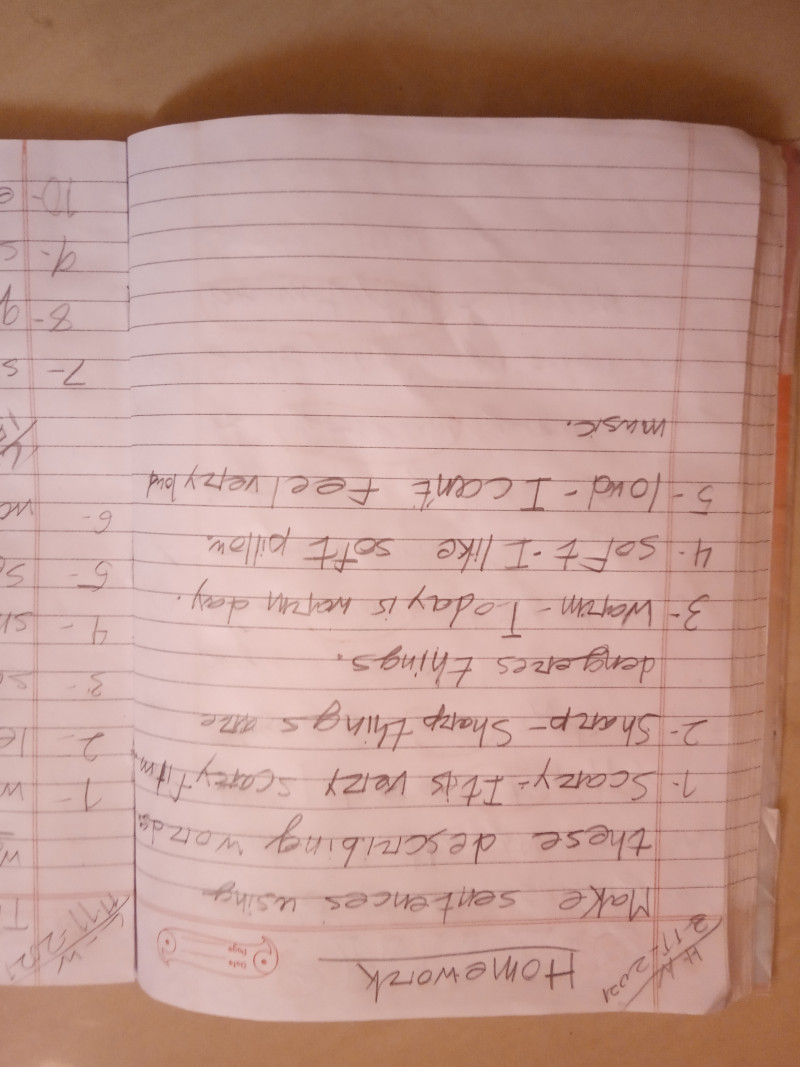 H.W
2-11-2021
Homework
Date
Page
Make sentences using
these describing words.
1- Scary- It is very scary film.
2- Sharp- Sharp things are
dengeres things.
3- Warm- Today is warm day.
4- Soft- I like soft pillow.
5- loud- I can't feel very loud
music.
1-
2-
3-
4-
5-
6-
7-
8-
9-
10-